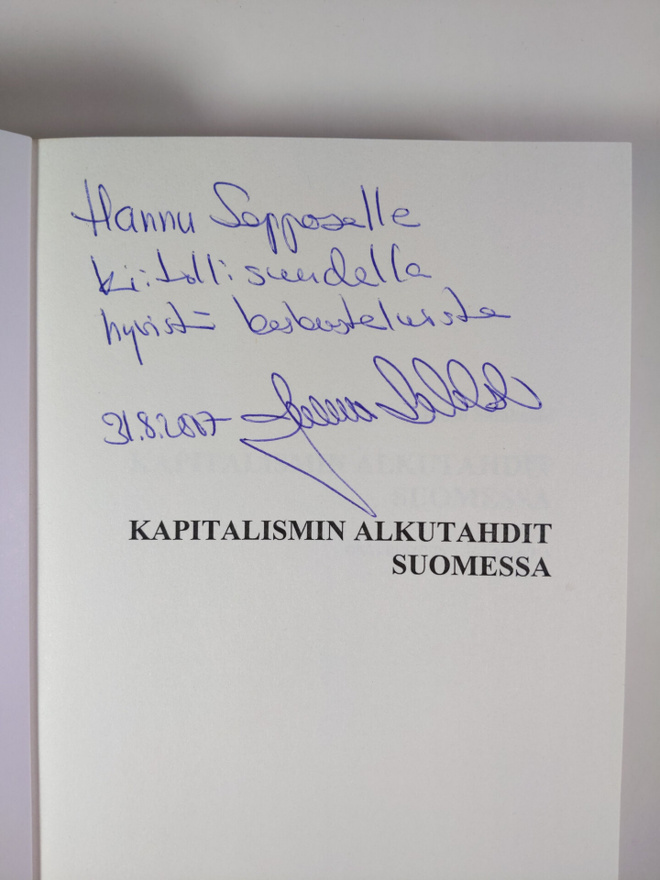 Hannu Sepposelle
kiitollisuudella
hyvistä keskusteluista
31.8.2007
KAPITALISMIN ALKUTAHDIT
SUOMESSA